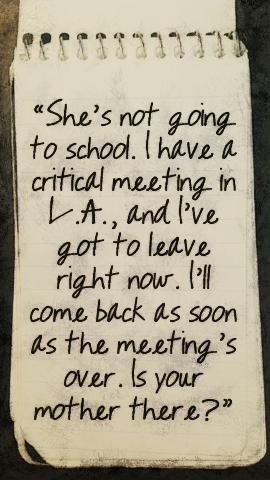 “She's not going
to school. I have a
critical meeting in
L.A., and I've
got to leave
right now. I'll
come back as soon
as the meeting's
over. Is your
mother there?”